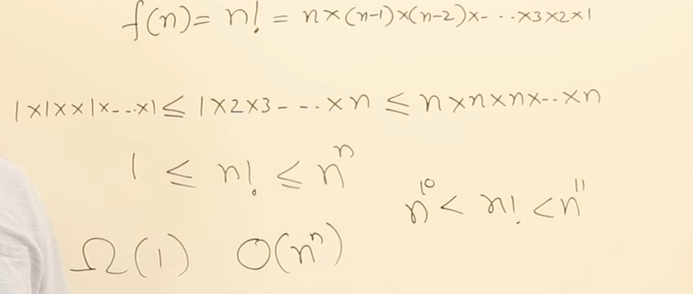 f(n) = n! = n×(n-1)×(n-2)×- - -×3×2×1
1×1××1×-..×1 ≤ 1×2×3- - ..×n ≤ n×n×n×-..×n
1 ≤ n! ≤ nⁿ
n¹⁰ < n! < n¹¹
Ω(1) O(nⁿ)